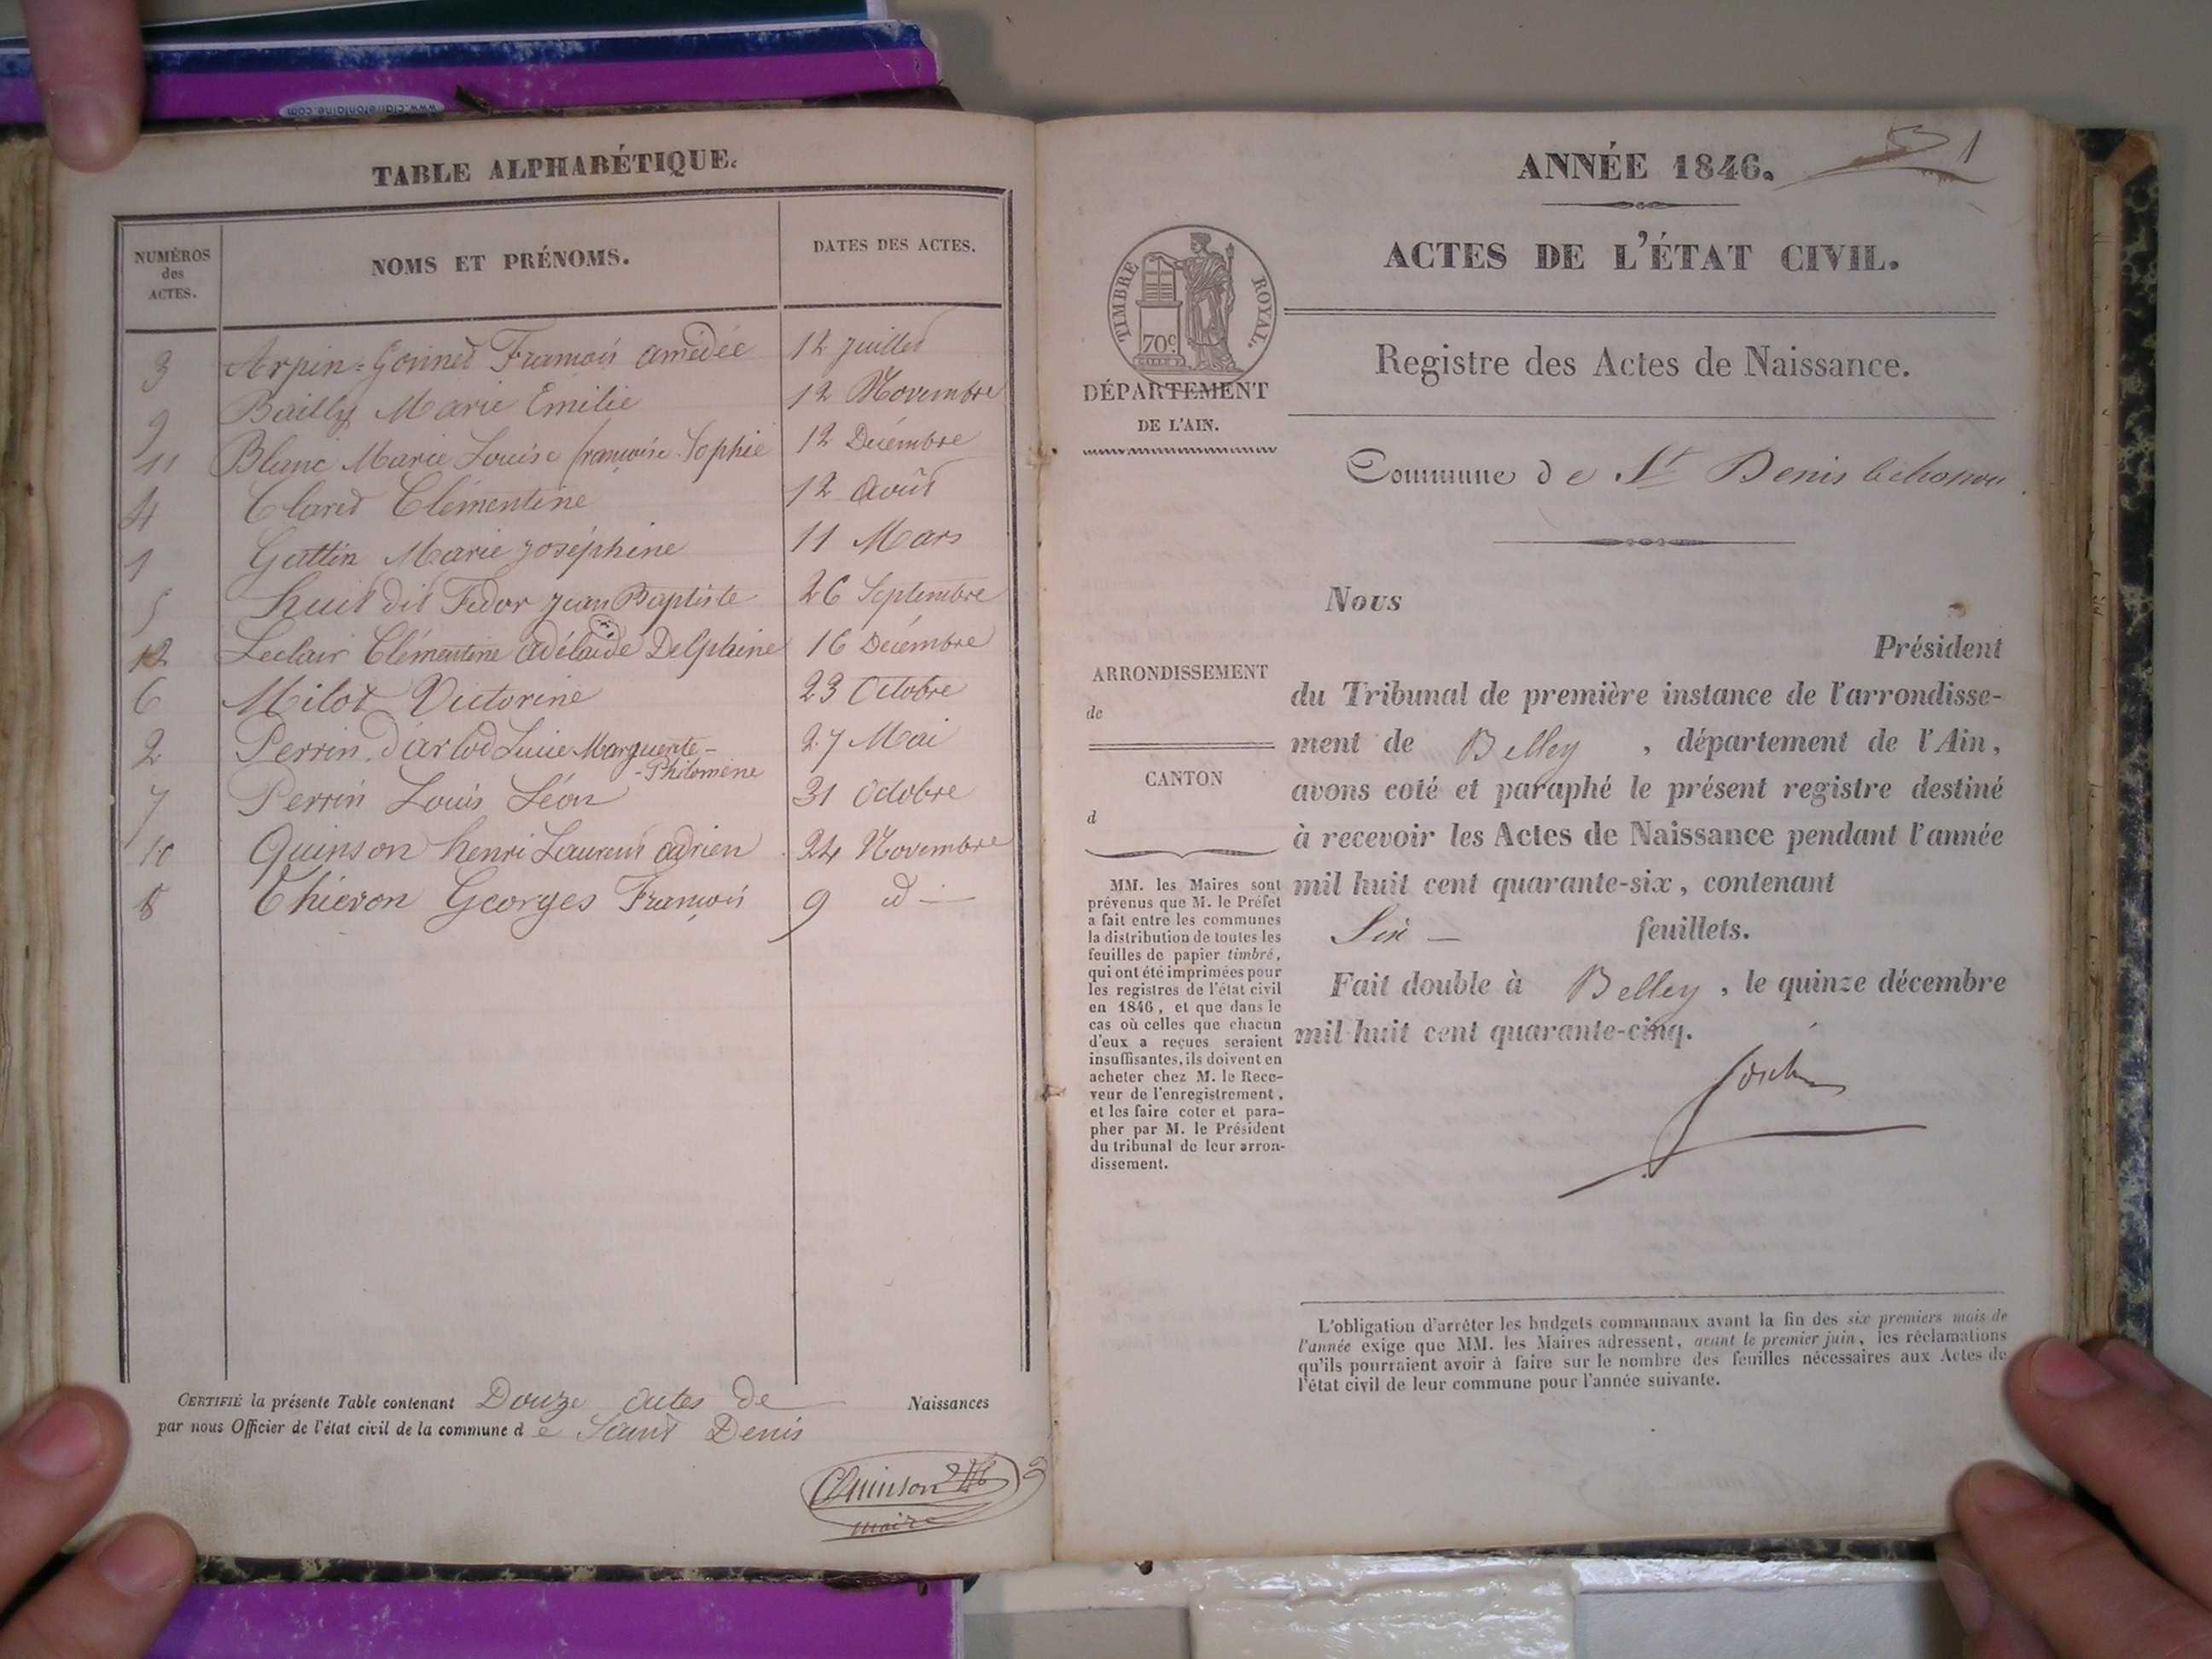 www.clairefontaine.com
TABLE ALPHABÉTIQUE.
NUMÉROS des ACTES.
NOMS ET PRÉNOMS.
DATES DES ACTES.
3 Arpin=Gonnet François amédée 12 Juillet
9 Bailly Marie Emilie 12 Novembre
11 Blanc Marie Louise françoise Sophie 12 Décembre
4 Claret Clémentine 12 Août
1 Gattin Marie Joséphine 11 Mars
5 huit dit Fedor Jean Baptiste 26 Septembre
12 Leclair Clémentine adélaide Delphine 16 Décembre
6 Milot Victorine 23 Octobre
2 Perrin d'arlod Lucie Marguerite-
-Philomène 27 Mai
7 Perrin Louis Léon 31 Octobre
10 Quinson henri Laurent adrien 24 Novembre
8 Thievon Georges François 9 d° —
CERTIFIÉ la présente Table contenant Douze actes de Naissances
par nous Officier de l'état civil de la commune de Saint Denis
Quinson
maire
1
ANNÉE 1846.
ACTES DE L'ÉTAT CIVIL.
TIMBRE ROYAL.
70c.
DÉPARTEMENT
DE L'AIN.
Registre des Actes de Naissance.
Commune de St Denis le chosson
ARRONDISSEMENT
de
CANTON
d
MM. les Maires sont
prévenus que M. le Préfet
a fait entre les communes
la distribution de toutes les
feuilles de papier timbré,
qui ont été imprimées pour
les registres de l'état civil
en 1846, et que dans le
cas où celles que chacun
d'eux a reçues seraient
insuffisantes, ils doivent en
acheter chez M. le Rece-
veur de l'enregistrement,
et les faire coter et para-
pher par M. le Président
du tribunal de leur arron-
dissement.
Nous
Président
du Tribunal de première instance de l'arrondisse-
ment de Belley, département de l'Ain,
avons coté et paraphé le présent registre destiné
à recevoir les Actes de Naissance pendant l'année
mil huit cent quarante-six, contenant
Six — feuillets.
Fait double à Belley, le quinze décembre
mil huit cent quarante-cinq.
L'obligation d'arrêter les budgets communaux avant la fin des six premiers mois de
l'année exige que MM. les Maires adressent, avant le premier juin, les réclamations
qu'ils pourraient avoir à faire sur le nombre des feuilles nécessaires aux Actes de
l'état civil de leur commune pour l'année suivante.